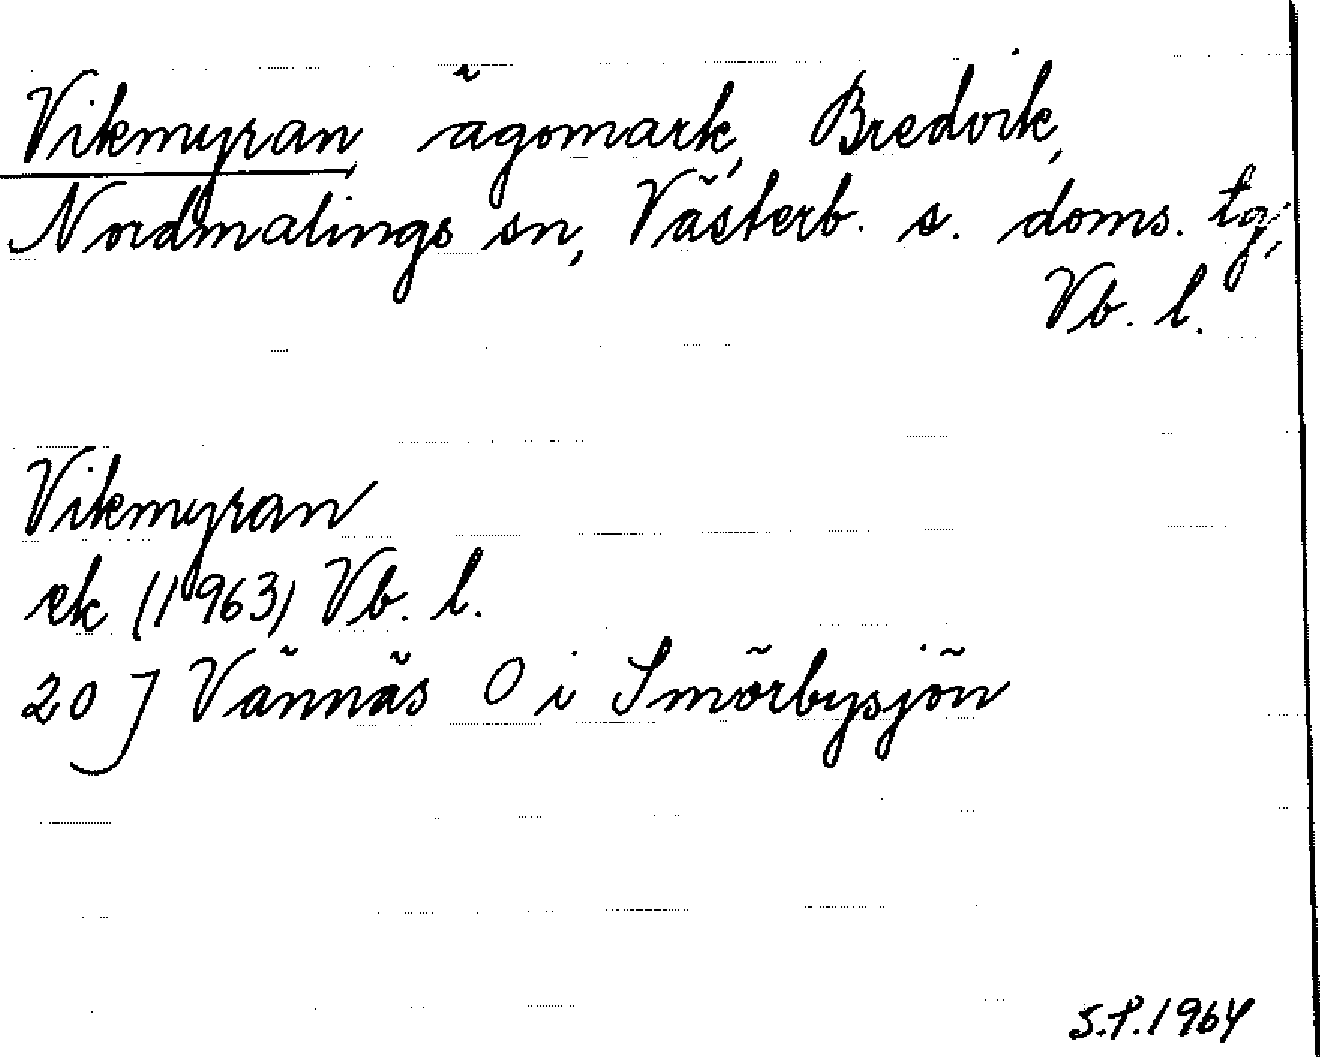 Vikmyran, ägomark, Bredvik,
Nordmalings sn, Västerb. s. doms. tg,
Vb. l.
Vikmyran
ek (1963) Vb. l.
20 J Vännäs O i Smörbysjön
S.P. 1964